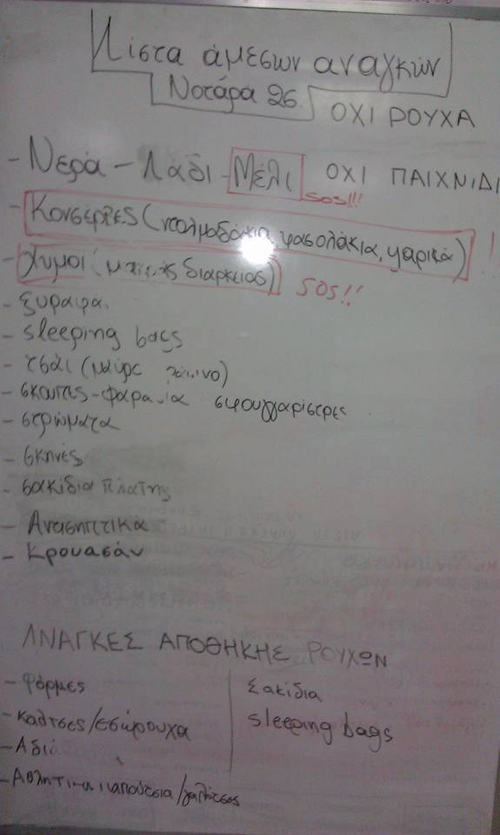 Λίστα άμεσων αναγκών
Νοταρά 26.
ΟΧΙ ΡΟΥΧΑ
- Νερά - Λάδι - Μέλι ΟΧΙ ΠΑΙΧΝΙΔΙ
SOS!!!
- Κονσέρβες (ντολμαδάκια, φασολάκια, ψαρικά) !
- Χυμοί (μακράς διαρκείας) SOS!!
- ξυραφια.
- sleeping bags
- τσάι (μαύρο
- σκουπες - φαρασια σφουγγαρίστρες
- στρώματα
- σκηνές
- σακίδια πλάτης
- Αντισηπτικά
- Κρουασάν
ΑΝΑΓΚΕΣ ΑΠΟΘΗΚΗΣ ΡΟΥΧΩΝ
- Φόρμες
- καλτσες/εσώρουχα
- Αθλητικα παπούτσια/γαλότσες
Σακίδια
sleeping bags